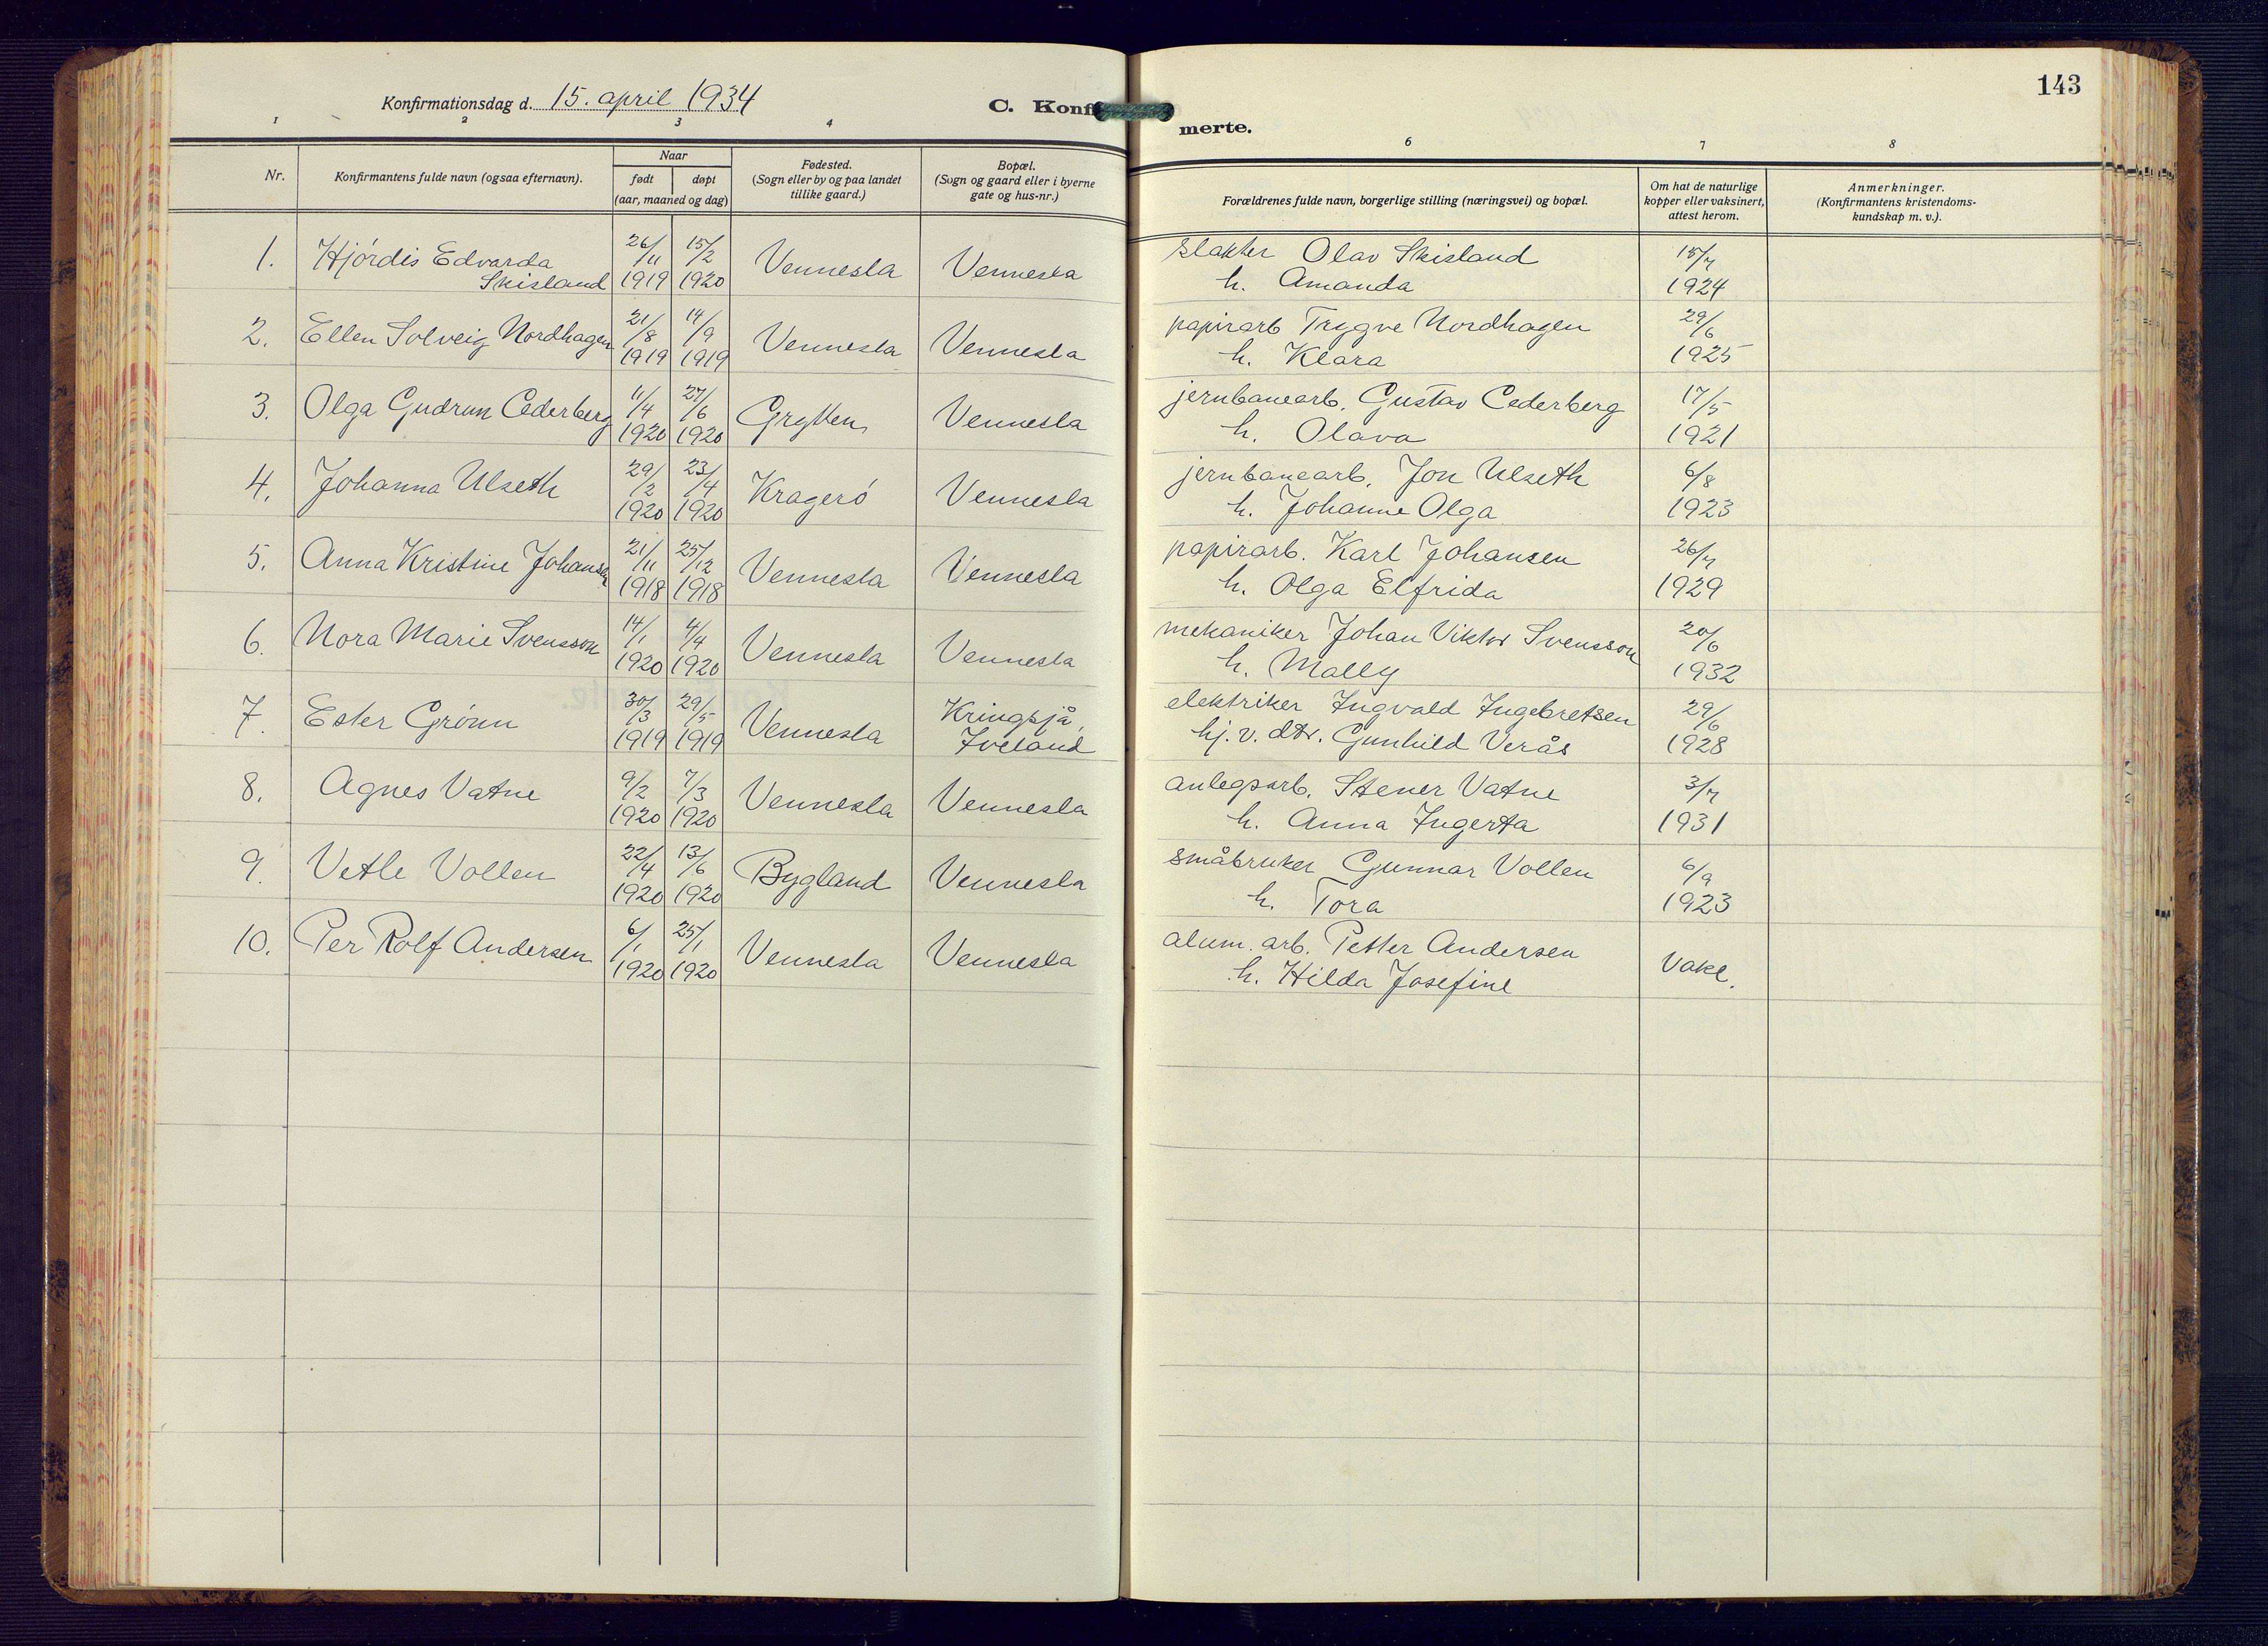 Konfirmationsdag d. 15. april 1934
C. Konfi
merte.
143
1 2 3 4 6 7 8
Nr.
Konfirmantens fulde navn (ogsaa efternavn).
Naar
født døpt
(aar, maaned og dag)
Fødested.
(Sogn eller by og paa landet
tillike gaard.)
Bopæl.
(Sogn og gaard eller i byerne
gate og hus-nr.)
Forældrenes fulde navn, borgerlige stilling (næringsvei) og bopæl.
Om hat de naturlige
kopper eller vaksinert,
attest herom.
Anmerkninger.
(Konfirmantens kristendoms-
kundskap m. v.).
1. Hjördis Edvarda 26/11 15/2 Vennesla Vennesla slakter Olav Skisland 15/7
Skisland 1919 1920 h. Amanda 1924
2. Ellen Solveig Nordhagen 21/8 14/9 Vennesla Vennesla papirarb Trygve Nordhagen 29/6
1919 1919 h. Klara 1925
3. Olga Gudrun Cederberg 11/4 27/6 Grytten Vennesla jernbanearb. Gustav Cederberg 17/5
1920 1920 h. Olava 1921
4. Johanna Ulseth 29/2 23/4 Kragerö Vennesla jernbanearb. Jon Ulseth 6/8
1920 1920 h. Johanne Olga 1923
5. Anna Kristine Johansen 21/11 25/12 Vennesla Vennesla papirarb. Karl Johansen 26/7
1918 1918 h. Olga Elfrida 1929
6. Nora Marie Svensson 14/1 4/4 Vennesla Vennesla mekaniker Johan Viktor Svensson 20/6
1920 1920 h. Mally 1932
7. Ester Grönn 30/3 29/5 Vennesla Kringsjå, elektriker Ingvald Ingebretsen 29/6
1919 1919 Iveland hj. v. dtr. Gunhild Verås 1928
8. Agnes Vatne 9/2 7/3 Vennesla Vennesla anlegsarb. Stener Vatne 3/7
1920 1920 h. Anna Ingerta 1931
9. Vetle Vollen 22/4 13/6 Bygland Vennesla småbruker Gunnar Vollen 6/9
1920 1920 h. Tora 1923
10. Per Rolf Andersen 6/1 25/1 Vennesla Vennesla alum. arb. Petter Andersen Vakc.
1920 1920 h. Hilda Josefine